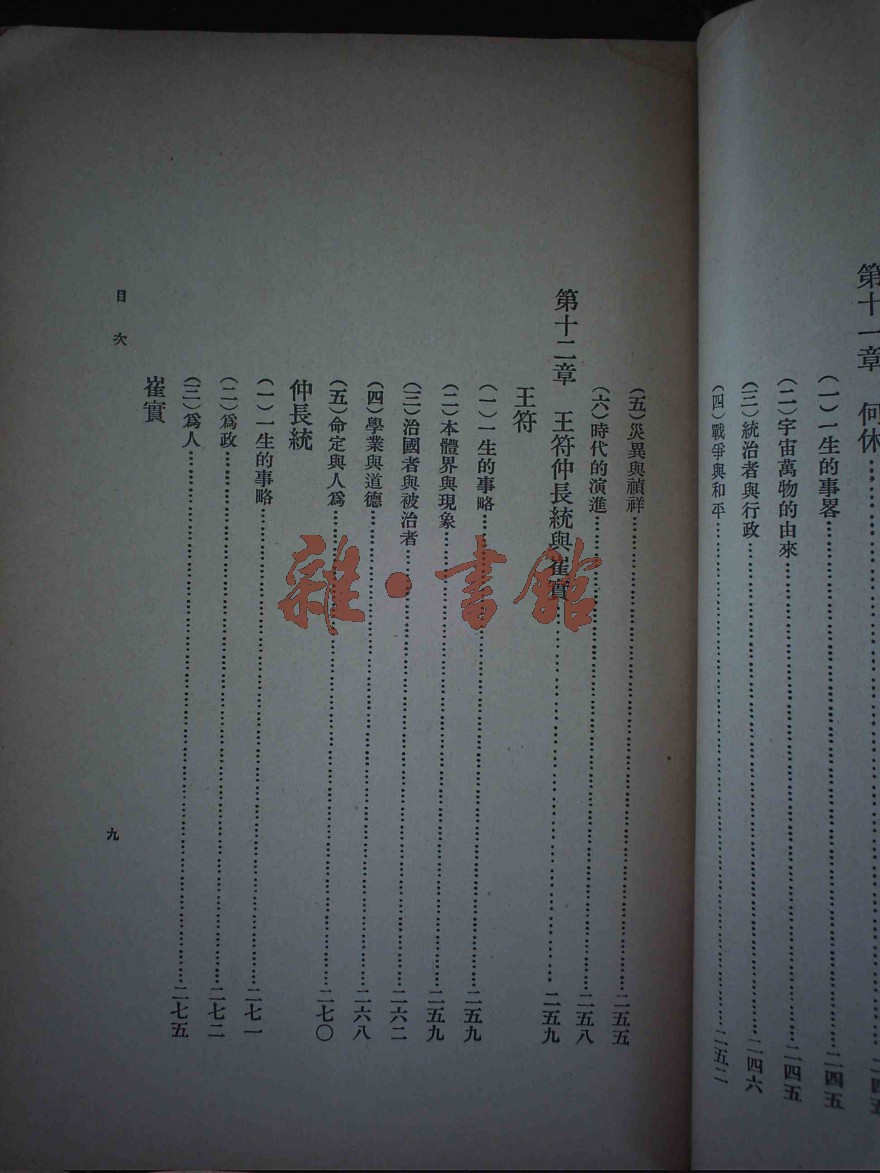 第十一章　何休………二四五
（一）一生的事畧………二四五
（二）宇宙萬物的由來………二四五
（三）統治者與行政………二四六
（四）戰爭與和平………二五二
（五）災異與禎祥………二五五
（六）時代的演進………二五八
第十二章　王符仲長統與崔實………二五九
王符
（一）一生的事略………二五九
（二）本體界與現象………二五九
（三）治國者與被治者………二六二
（四）學業與道德………二六八
（五）命定與人爲………二七〇
仲長統
（一）一生的事略………二七一
（二）爲政………二七二
（三）爲人………二七五
崔實
目次
九
雜·書館